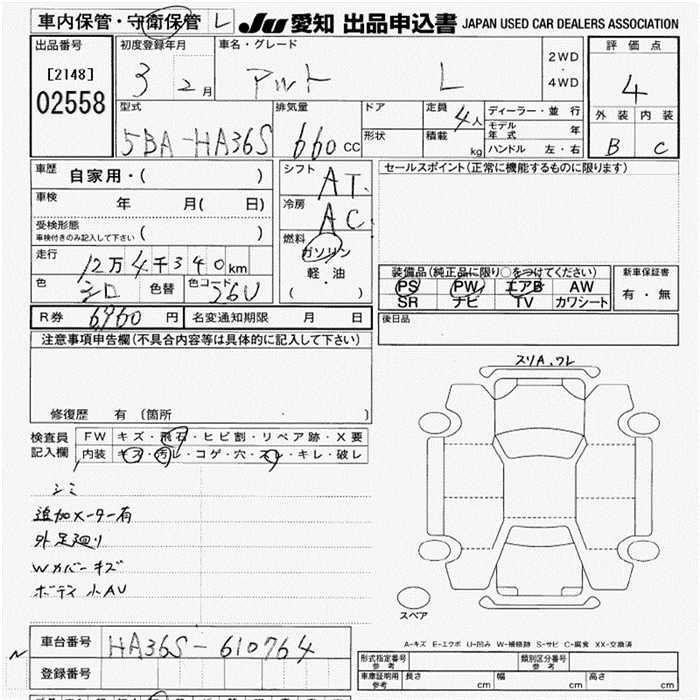 車内保管・守衛保管 L JU 愛知 出品申込書 JAPAN USED CAR DEALERS ASSOCIATION
出品番号 初度登録年月 車名・グレード 2WD・4WD 評価点
[2148] 3 2月 アルト L 4
02558
型式 排気量 ドア 定員 4人 ディーラー・並行 外装 内装
5BA-HA36S 660cc 形状 積載 kg モデル年式 年 B C
ハンドル 左・右
車歴 自家用・( ) シフト AT. セールスポイント(正常に機能するものに限ります)
車検 年 月( 日) 冷房 AC.
受検形態 車検付きのみ記入して下さい ( ) 燃料 ガソリン
走行 12万4千340km 軽・油 装備品(純正品に限り○をつけてください) 新車保証書
色 シロ 色替 色コード 26U ( ) PS PW エアB AW 有・無
SR ナビ TV カワシート
R券 6960円 名変通知期限 月 日 後日品
注意事項申告欄(不具合内容等は具体的に記入して下さい)
スリA、ワレ
修復歴 有 (箇所 )
検査員記入欄 FW キズ・飛石・ヒビ割・リペア跡・X要
内装 キズ・汚レ・コゲ・穴・スレ・キレ・破レ
シミ
追加メーター有
外足廻り
Wカバーキズ
ボディ小AU
スペア
A-キズ E-エクボ U-凹み W-補修跡 S-サビ C-腐食 XX-交換済
車台番号 HA36S-610764
形式指定番号 参考 類別区分番号 参考
登録番号 車庫証明用 参考 長さ cm 幅 cm 高さ cm